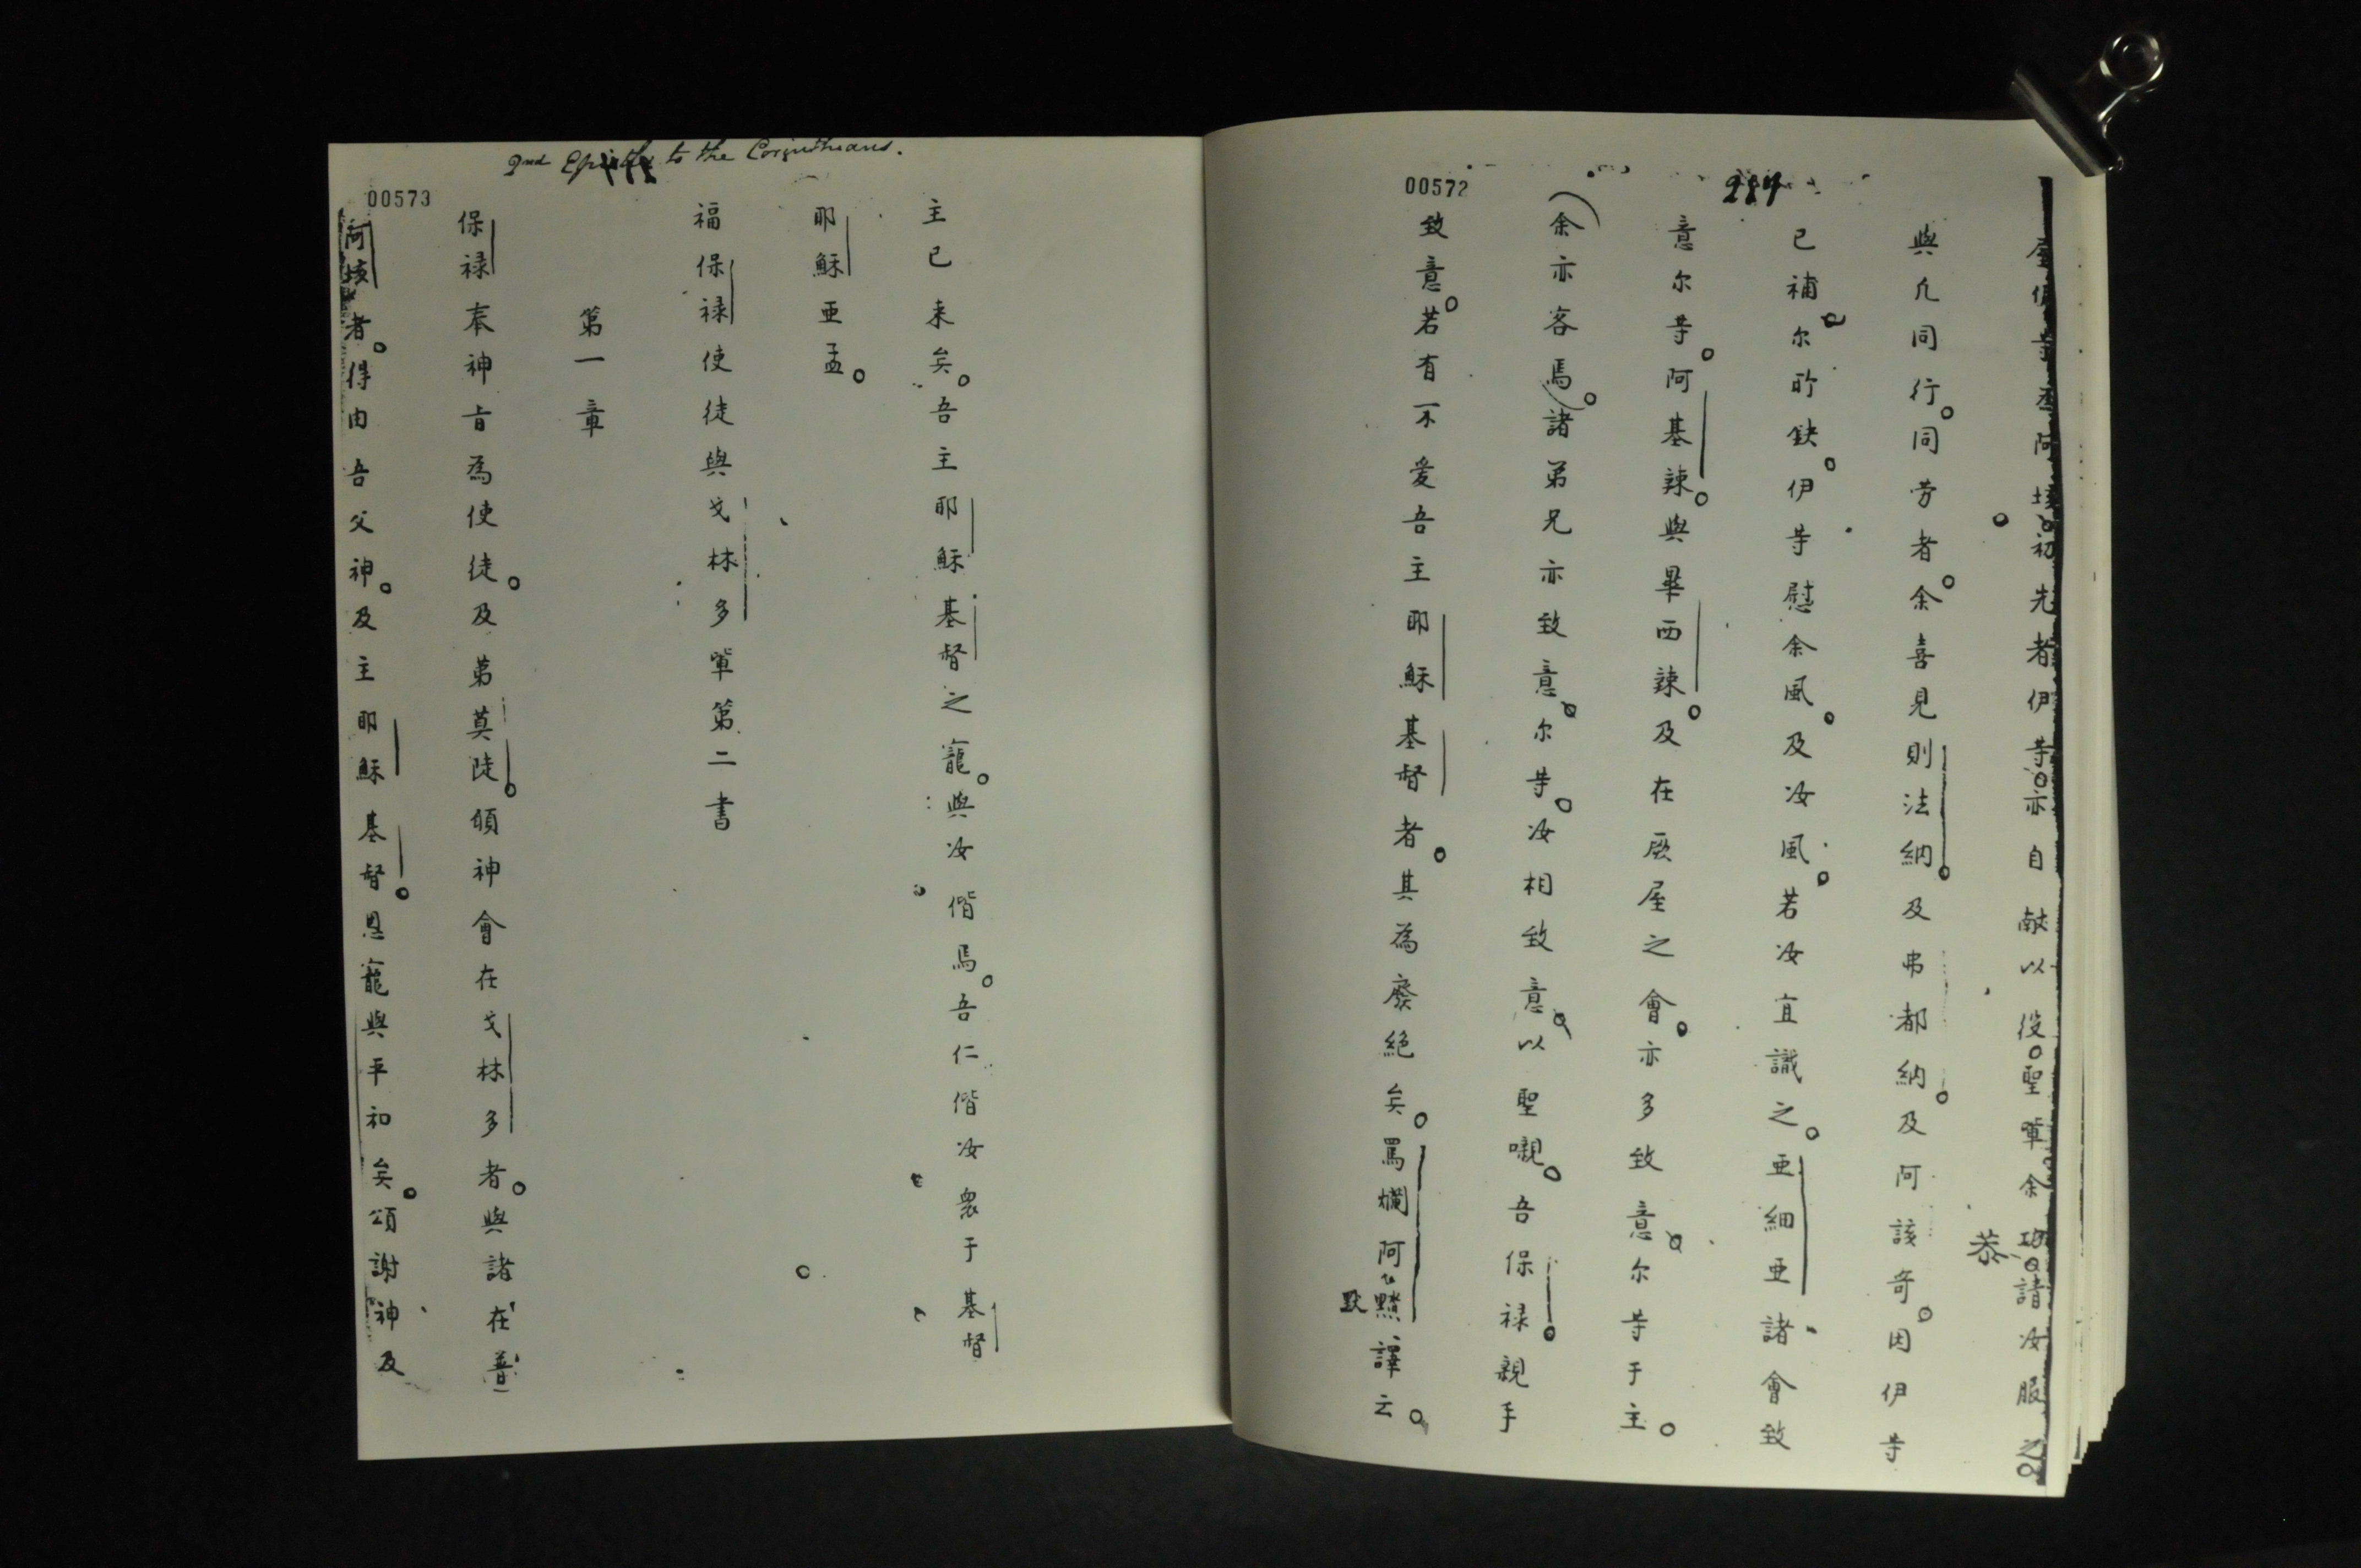 284
00572
初先者伊等。亦自献以役。聖軰。余功。請汝服之。
恭
與凢同行。同劳者。余喜見則法納。及弗都納。及阿該奇。因伊等
已補尔所缺。伊等慰余風。及汝風。若汝宜識之。亜細亜諸會致
意尔等。阿基竦。與畢西竦。及在厥屋之會。亦多致意尔等于主。
(余亦客焉)。諸弟兄亦致意尔等。汝相致意。以聖嚫。吾保禄。親手
致意。若有不爱吾主耶穌基督者。其為廢絕矣。罵爛阿黙譯云。
默
2nd Epistle to the Corinthians.
00573
主已来矣。吾主耶穌基督之寵。與汝偕焉。吾仁偕汝衆于基督
耶穌亜孟。
福保禄使徒與戈林多軰第二書
第一章
保禄奉神旨為使徒。及弟莫陡。頒神會在戈林多者。與諸在普
阿垓者。得由吾父神。及主耶穌基督。恩寵與平和矣。頌謝神及